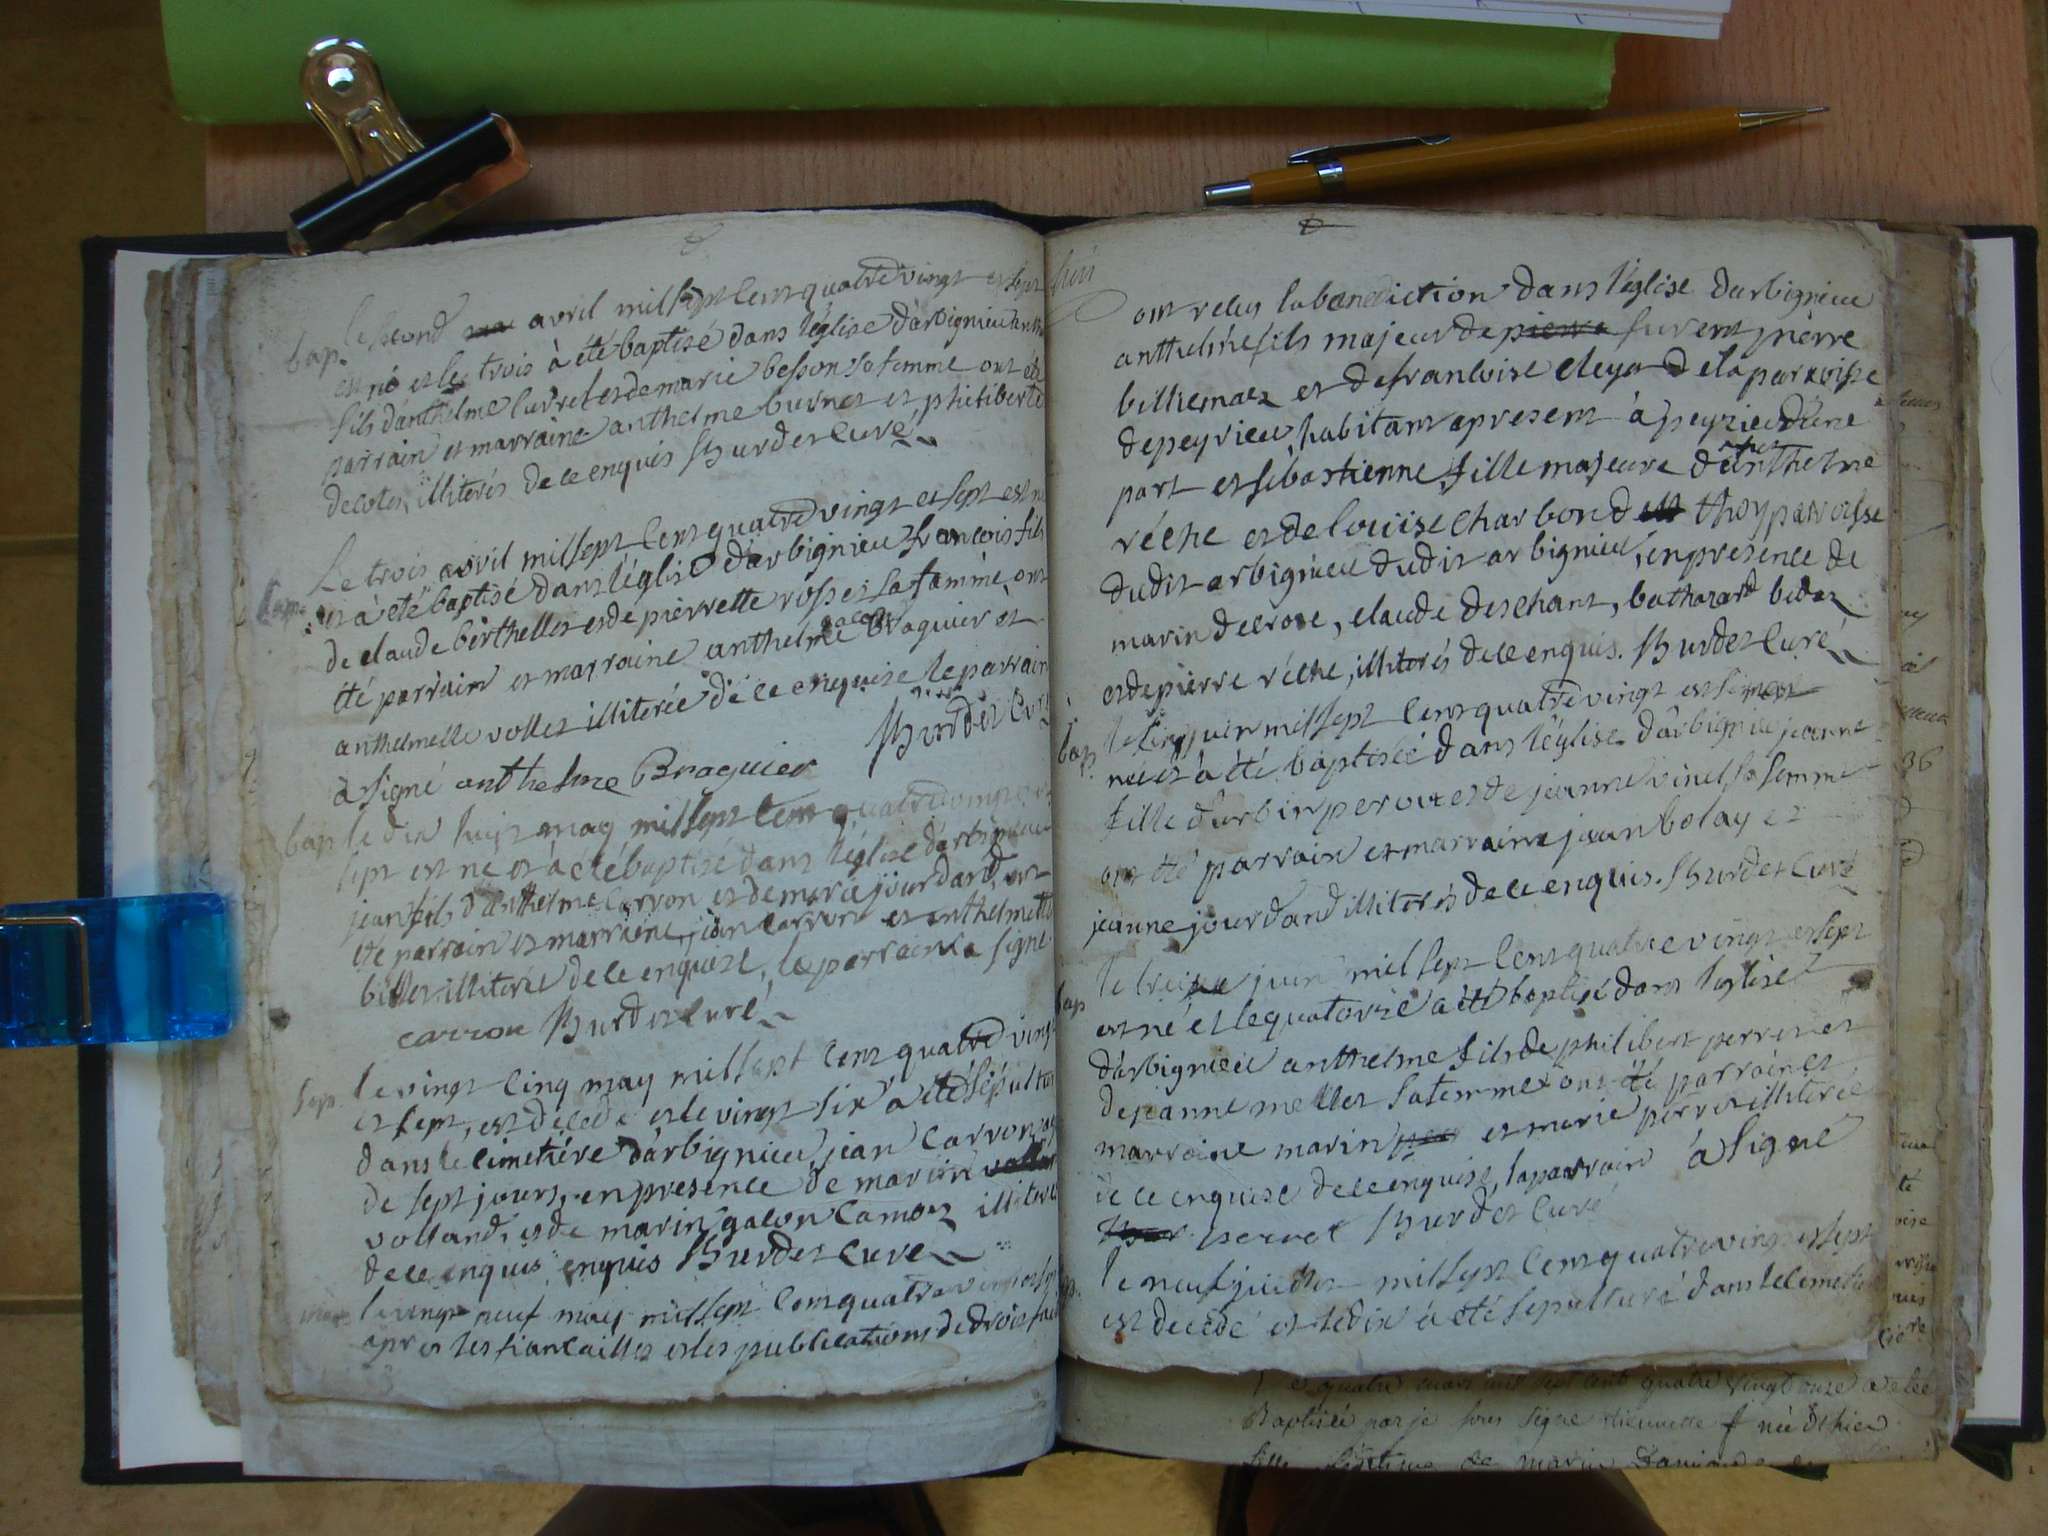 bap. le second avril mil sept cent quatre vingt et sept
est né et le trois à été baptisé dans l'église d'arbignieu
fils d'anthelme curvet et de marie besson sa femme ont été
parrain et marraine anthelme burnet et philiberte
decotes, illiterés de ce enquis hurdet curé
Le trois avril mil sept cent quatre vingt et sept est né
bap. et à été baptisé dans l'église d'arbignieu francois fils
de claude berthellet et de pierrette rosset sa famme, ont
été parrain et marraine anthelme braguier et
anthelmelle vollet illiterée de ce enquise le parrain
à signé anthelme Braguier hurdet curé
bap le dix huit may mil sept cent quatre vingt et
sept est né et à été baptisé dans l'église d'arbignieu
jean fils d'anthelme carron et de marie jourdand, ont
été parrain et marraine, jean carron et anthelmette
billet illiterée de ce enquise, le parrain a signé
carron hurdet curé
sep. le vingt cinq may mil sept cent quatre vingt
et sept, est décédé et le vingt six à été sépulturé
dans le cimetiére d'arbignieu jean carron agé
de sept jours, en presence de marin
volland, et de marin galon camoz illiterés
de ce enquis enquis hurdet curé
mar le vingt neuf may mil sept cent quatre vingt et sept
apres les fiancailles et les publications de droit
ont recus la benediction dans l'église d'arbignieu
anthelme fils majeur de pierre furent pièrre
billiemaz et de francoise cleya de la paroisse
de peyrieu, habitant apresent à peyzieu d'une
part et sébastienne fille majeure d'anthelme
réche et de louise charbon de thoy paroisse
dudit arbignieu dudit arbignieu, en presence de
marin decrose, claude deschant, bathazard bidaz
et de pierre réche, illiterés de ce enquis. hurdet curé
bap. le six juin mil sept cent quatre vingt et sept est
née et à été baptisée dans l'église d'arbignieu jeanne
fille d'urbin peroux et de jeanne vinet sa femme
ont été parrain et marraine jean bolay et
jeanne jourdand illiterés de ce enquis. hurdet curé
bap le treize juin mil sept cent quatre vingt et sept
est né et le quatorze à été baptisé dans l'eglise
d'arbignieu anthelme fils de philibert perret et
de jeanne mellet sa femme ont été parrain et
marraine marin et marie perret illiterée
de ce enquise de ce enquise, le parrain à signé
perret hurdet curé
le neuf juillet mil sept cent quatre vingt et sept
est décedé et le dix à été sepulturé dans le cimetiere
quatre mars mil sept cent quatre vingt onze a été
Baptisée par je sous signé née d'hier
fille légitime de marin